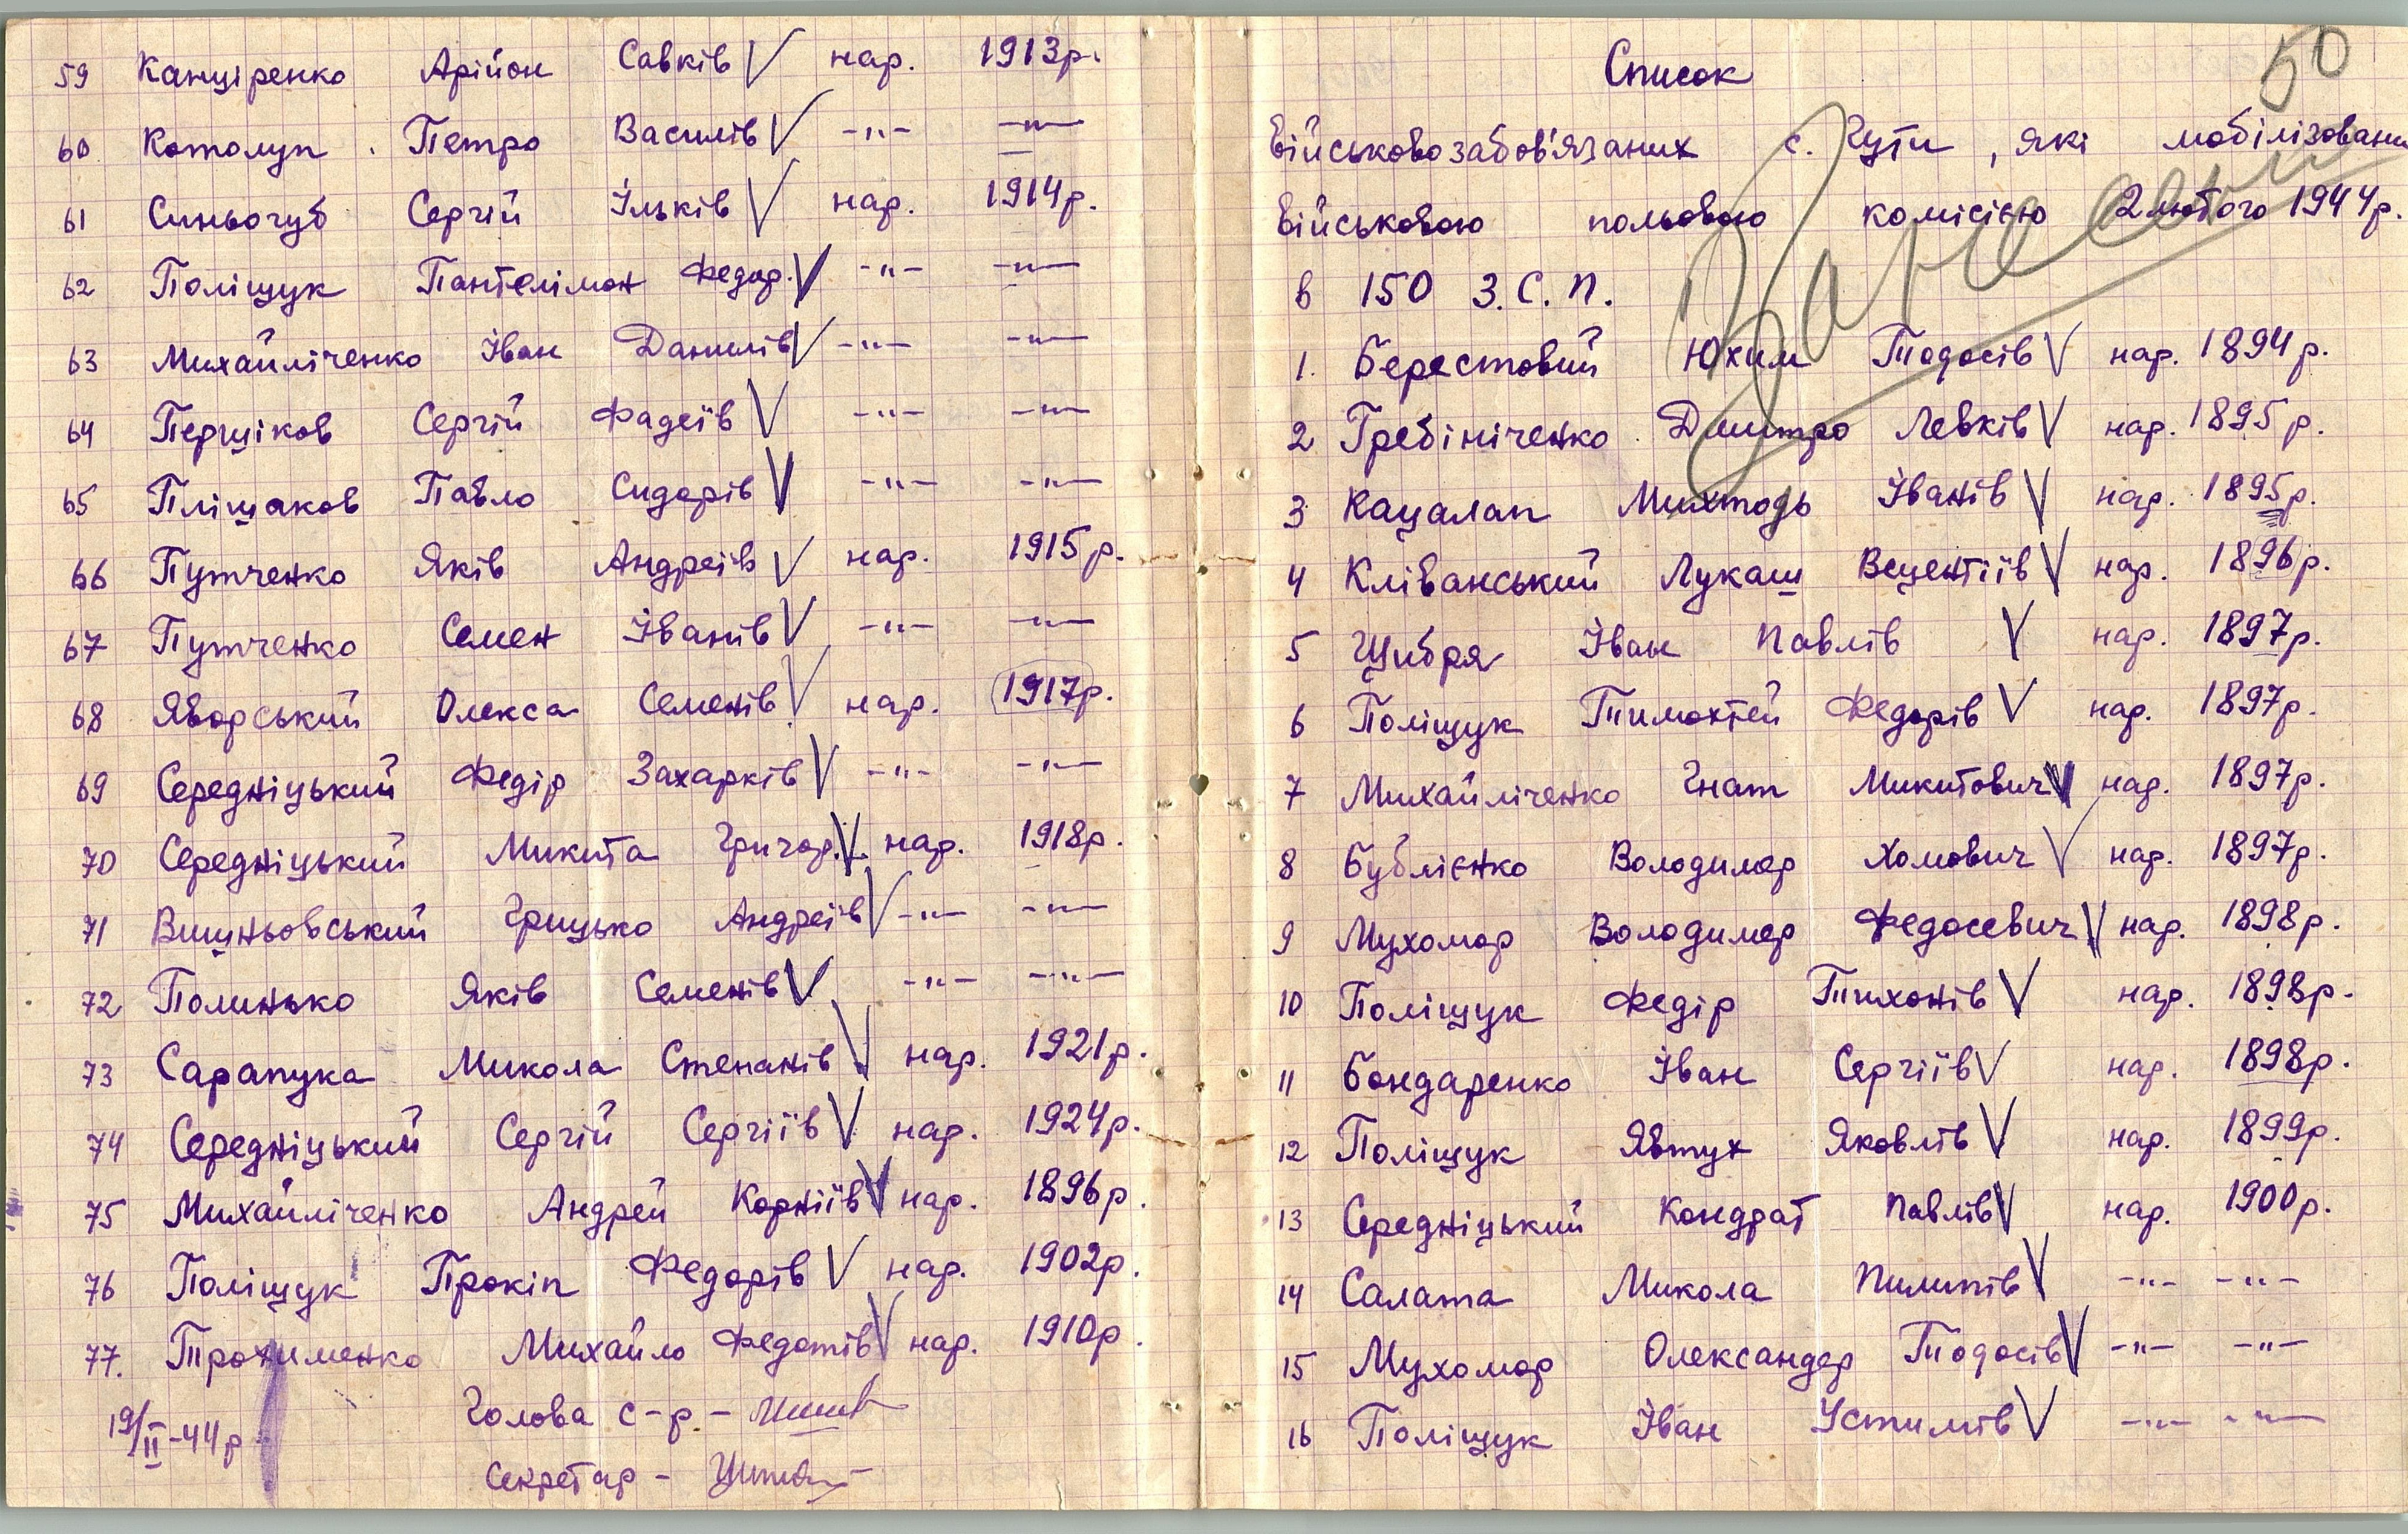 59 Канціренко Арійон Савків V нар. 1913р.
60 Котолуп Петро Василів V -"- -"-
61 Синьогуб Сергій Ільків V нар. 1914р.
62 Поліщук Пантелімон Федор. V -"- -"-
63 Михайліченко Іван Данилів V -"- -"-
64 Першіков Сергій Фадеїв V -"- -"-
65 Плішаков Павло Сидорів V -"- -"-
66 Путченко Яків Андреїв V нар. 1915р.
67 Путченко Семен Іванів V -"- -"-
68 Яворський Олекса Семенів V нар. 1917р.
69 Середніцький Федір Захарків V -"- -"-
70 Середніцький Микита Григор. V нар. 1918р.
71 Вишньовський Грицько Андреїв V -"- -"-
72 Полинько Яків Семенів V -"- -"-
73 Сарапука Микола Степанів V нар. 1921р.
74 Середніцький Сергій Сергіїв V нар. 1924р.
75 Михайліченко Андрей Корніїв V нар. 1896р.
76 Поліщук Прокіп Федорів V нар. 1902р.
77. Трохименко Михайло Федотів V нар. 1910р.
19/II-44р Голова с-р -
Секретар -
50
Список
Військовозабов'язаних с. Гути, які мобілізовани
Військовою польовою комісією 2 лютого 1944р.
в 150 З.С.П.
1. Берестовий Юхим Тодосів V нар. 1894р.
2 Гребініченко Дмитро Левків V нар. 1895р.
3 Кацалап Михтодь Іванів V нар. 1895р.
4 Кліванський Лукаш Вецентіїв V нар. 1896р.
5 Щибря Іван Павлів V нар. 1897р.
6 Поліщук Тимохтей Федорів V нар. 1897р.
7 Михайліченко Гнат Микитович V нар. 1897р.
8 Бублієнко Володимер Хомович V нар. 1897р.
9 Мухомор Володимер Федосевич V нар. 1898р.
10 Поліщук Федір Тихонів V нар. 1898р.
11 Бондаренко Іван Сергіїв V нар. 1898р.
12 Поліщук Явтух Яковлів V нар. 1899р.
13 Середніцький Кондрат Павлів V нар. 1900р.
14 Салата Микола Пилипів V -"- -"-
15 Мухомор Олександер Тодосів V -"- -"-
16 Поліщук Іван Устимів V -"- -"-